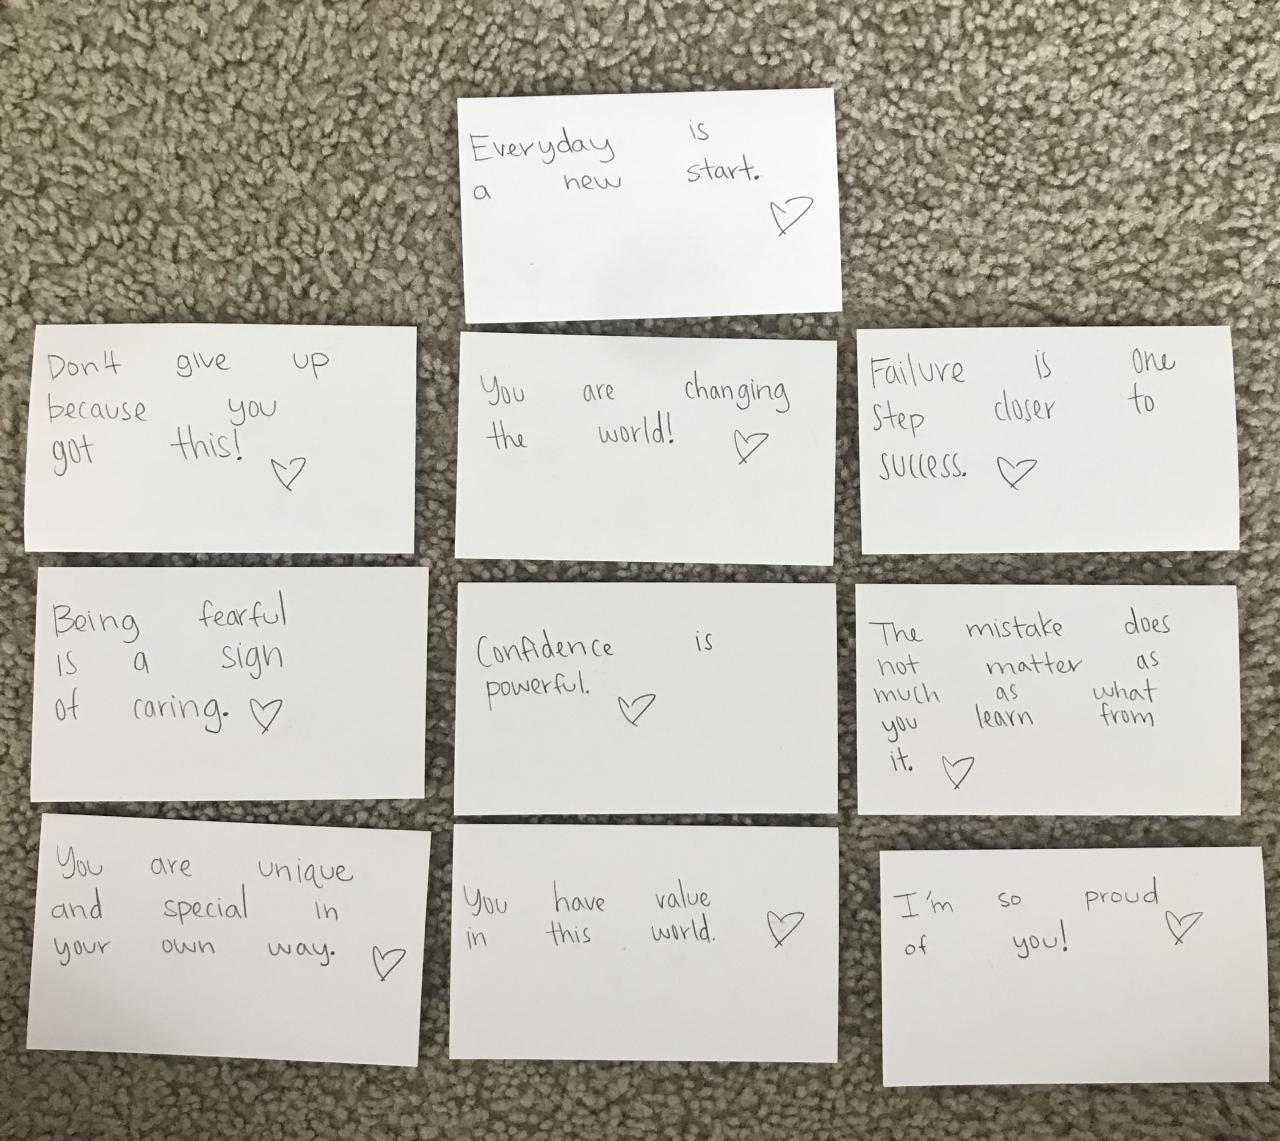 Everyday is
a new start.
Don't give up
because you
got this!
You are changing
the world!
Failure is one
step closer to
success.
Being fearful
is a sign
of caring.
Confidence is
powerful.
The mistake does
not matter as
much as what
you learn from
it.
You are unique
and special in
your own way.
You have value
in this world.
I'm so proud
of you!